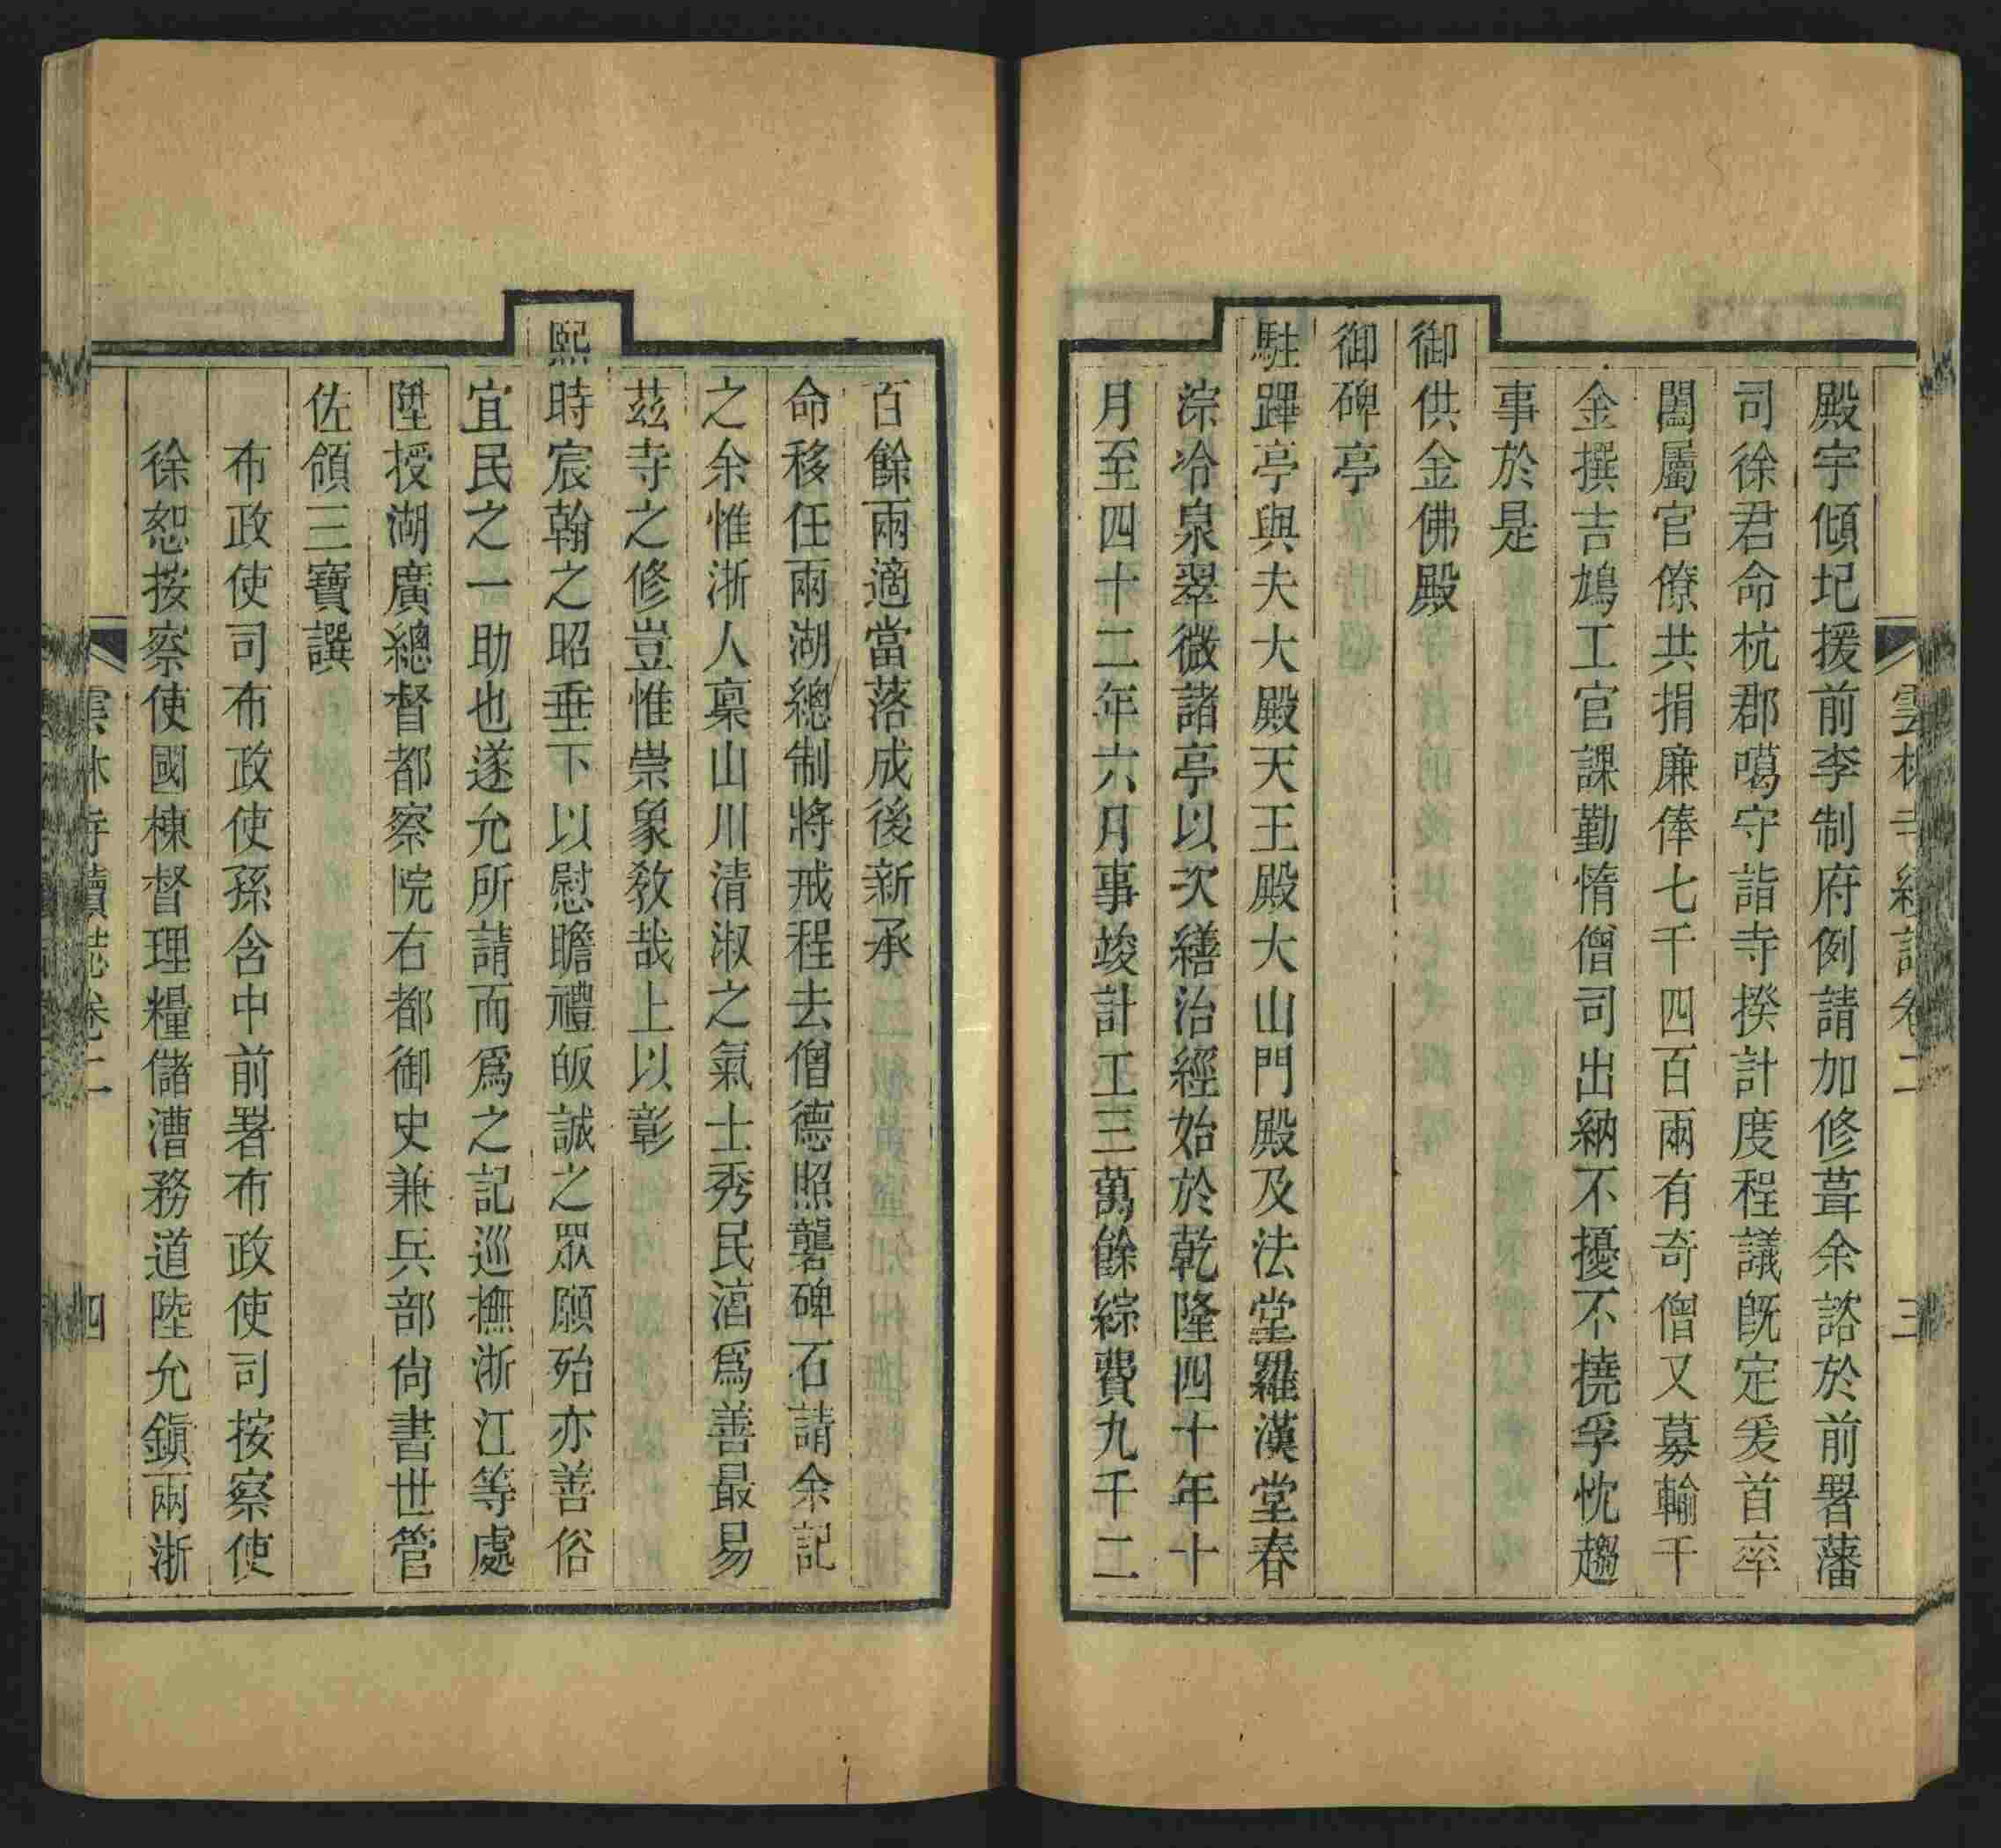 雲林寺續誌卷二 三
殿宇傾圮援前李制府例請加修葺余諮於前署藩
司徐君命杭郡噶守詣寺揆計度程議旣定爰首率
闔屬官僚共捐廉俸七千四百兩有奇僧又募輸千
金撰吉鳩工官課勤惰僧司出納不擾不撓孚忱趨
事於是
御供金佛殿
御碑亭
駐蹕亭與夫大殿天王殿大山門殿及法堂羅漢堂春
淙冷泉翠微諸亭以次繕治經始於乾隆四十年十
月至四十二年六月事竣計工三萬餘綜費九千二
百餘兩適當落成後新承
命移任兩湖總制將戒程去僧德照礱碑石請余記
之余惟浙人稟山川清淑之氣士秀民湻爲善最易
茲寺之修豈惟崇象敎哉上以彰
熙時宸翰之昭垂下以慰瞻禮皈誠之眾願殆亦善俗
宜民之一助也遂允所請而爲之記巡撫浙江等處
陞授湖廣總督都察院右都御史兼兵部尙書世管
佐領三寶譔
布政使司布政使孫含中前署布政使司按察使
徐恕按察使國棟督理糧儲漕務道陸允鎭兩浙
雲林寺續誌卷二 四